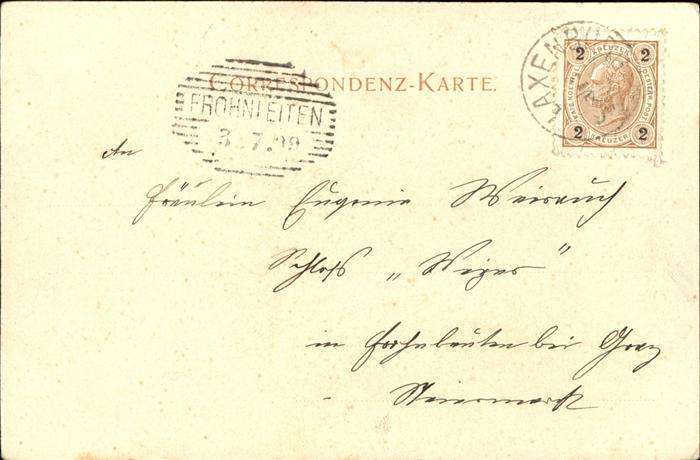 CORRESPONDENZ-KARTE.
LAXENBURG
2 KREUZER 2
2 KREUZER 2
FROHNLEITEN
3.7.99
An
Fräulein Eugenie Weirauch
Schloß „Weyer"
in Frohnleiten bei Graz
Steiermark